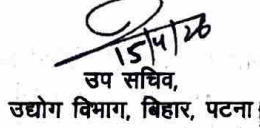 15/4/26
उप सचिव,
उद्योग विभाग, बिहार, पटना